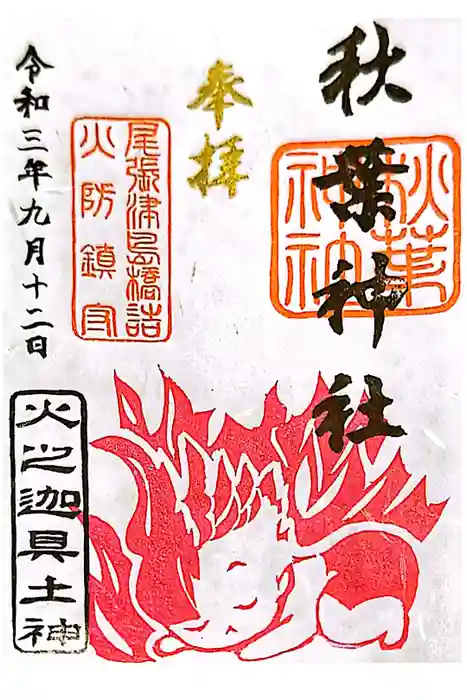 秋葉神社
秋葉
神社
奉拝
尾張津島橋詰
火防鎮守
令和三年九月十二日
火之迦具土神